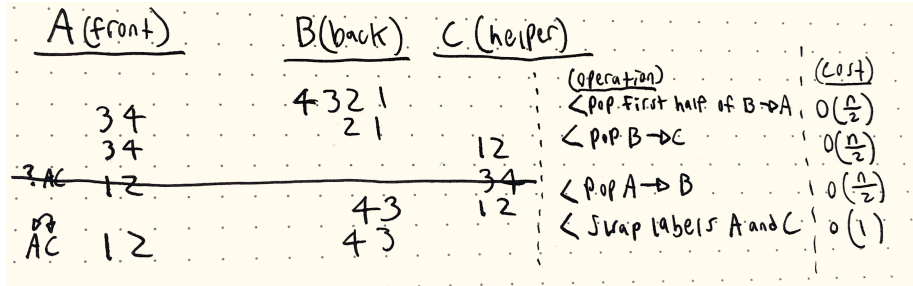 A (front) B (back) C (helper)
(operation) (cost)
4 3 2 1
3 4 2 1 < pop first half of B → A O(n/2)
3 4 1 2 < pop B → C O(n/2)
? AC 1 2 3 4
4 3 1 2 < pop A → B O(n/2)
AC 1 2 4 3 < swap labels A and C O(1)